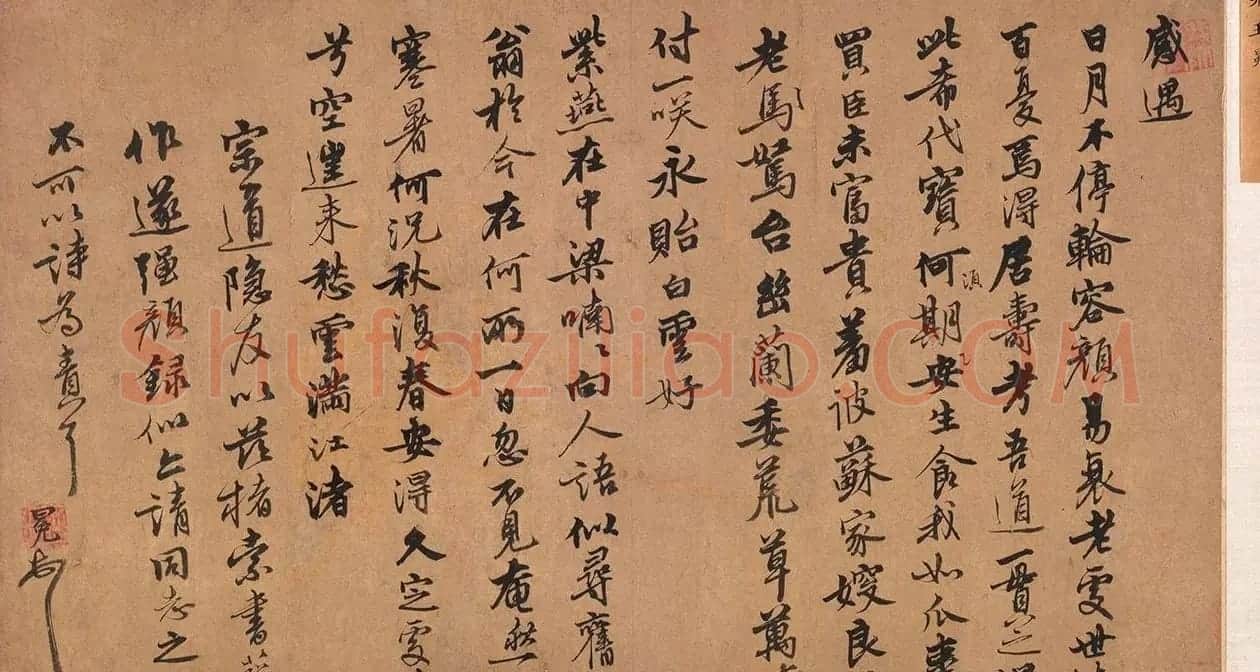 感遇
日月不停輪容顏易衰老處世
百憂焉得居壽考吾道一貫之
此希代寶何須期安生食我如瓜棗
買臣未富貴羞彼蘇家嫂良
老馬駑台幽蘭委荒草萬
付一咲永貽白雲好
紫燕在中梁喃〻向人語似尋舊
翁於今在何所一日忽不見奄然
寒暑何況秋復春安得久定處
兮空階未愁雲滿江渚
宗道隱友以茲楮索書
作遂強顏錄似上請同志之
不可以詩為責可
冕
shufaziliao.COM